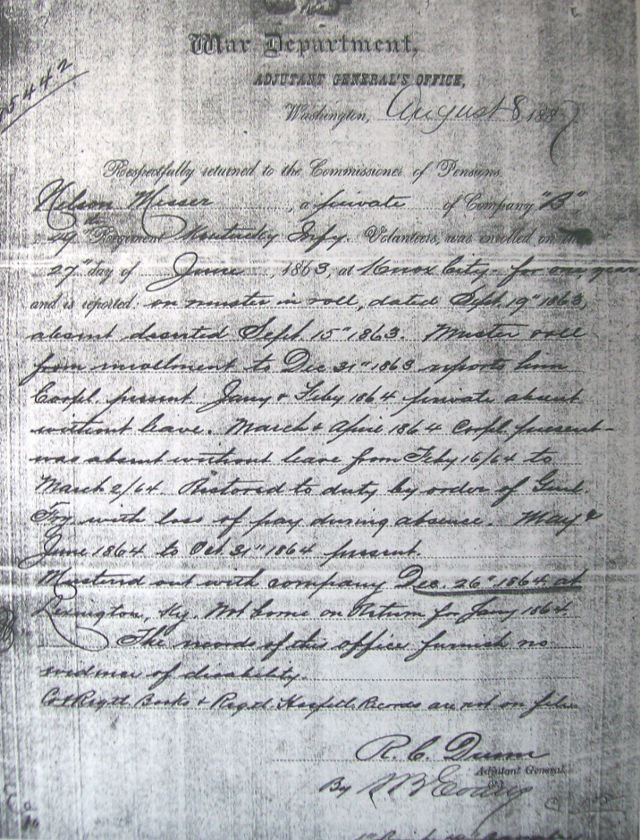 5442
War Department,
ADJUTANT GENERAL'S OFFICE,
Washington, August 8, 188
Respectfully returned to the Commissioner of Pensions.
Nelson Messer, a private of Company "B"
49th Regiment Kentucky Infy. Volunteers, was enrolled on the
27" day of June, 1863, at Knox City for one year
and is reported: on muster in roll, dated Sept. 19" 1863,
absent deserted Sept. 15" 1863. Muster roll
from enrollment to Dec 31" 1863 reports him
Corpl. present Jany & Feby 1864 private absent
without leave. March & April 1864 Corpl. present
was absent without leave from Feby 16/64 to
March 2/64. Restored to duty by order of Genl.
Fry with loss of pay during absense. May &
June 1864 to Oct. 31" 1864 present.
Mustered out with company Dec. 26" 1864 at
Lexington, Ky. Not borne on Return for Jany 1864
The records of this office furnish no
evidence of disability.
Co & Regtl Books & Regtl Hospital Records are not on file.
R. C. Drum
Adjutant General.
By